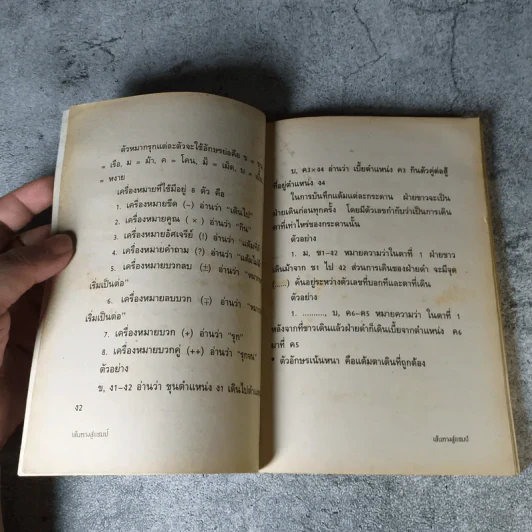 ตัวหมากรุกแต่ละตัวจะใช้อักษรย่อคือ ข =
= เรือ, ม = ม้า, ค = โคน, ม็ = เม็ด, บ =
= หงาย
เครื่องหมายที่ใช้มีอยู่ 8 ตัว คือ
1. เครื่องหมายขีด (–) อ่านว่า "เดินไป"
2. เครื่องหมายคูณ (×) อ่านว่า "กิน"
3. เครื่องหมายอัศเจรีย์ (!) อ่านว่า
4. เครื่องหมายคำถาม (?) อ่านว่า
5. เครื่องหมายบวกลบ (±) อ่านว่า
เริ่มเป็นต่อ"
6. เครื่องหมายลบบวก (∓) อ่านว่า
เริ่มเป็นต่อ"
7. เครื่องหมายบวก (+) อ่านว่า "รุก"
8. เครื่องหมายบวกคู่ (++) อ่านว่า "รุกจน"
ตัวอย่าง
ข, ง1–ง2 อ่านว่า ขุนตำแหน่ง ง1 เดินไปตำแหน่ง
ง2
เส้นทางสู่แชมป์
บ, ค3×ง4 อ่านว่า เบี้ยตำแหน่ง ค3 กินตัวคู่ต่อสู้
ที่อยู่ตำแหน่ง ง4
ในการบันทึกแต้มแต่ละกระดาน ฝ่ายขาวจะเป็น
ฝ่ายเดินก่อนทุกครั้ง โดยมีตัวเลขกำกับว่าเป็นการเดิน
ตาที่เท่าไหร่ของกระดานนั้น
ตัวอย่าง
1. ม, ข1–ง2 หมายความว่าในตาที่ 1 ฝ่ายขาว
เดินม้าจาก ข1 ไป ง2 ส่วนการเดินของฝ่ายดำ จะมีจุด
(.....) คั่นอยู่ระหว่างตัวเลขที่บอกที่และตาที่เดิน
ตัวอย่าง
1. ........., บ, ค6–ค5 หมายความว่า ในตาที่ 1
หลังจากที่ขาวเดินแล้วฝ่ายดำก็เดินเบี้ยจากตำแหน่ง ค6
มาที่ ค5
* ตัวอักษรเน้นหนา คือแต้มตาเดินที่ถูกต้อง
เส้นทางสู่แชมป์